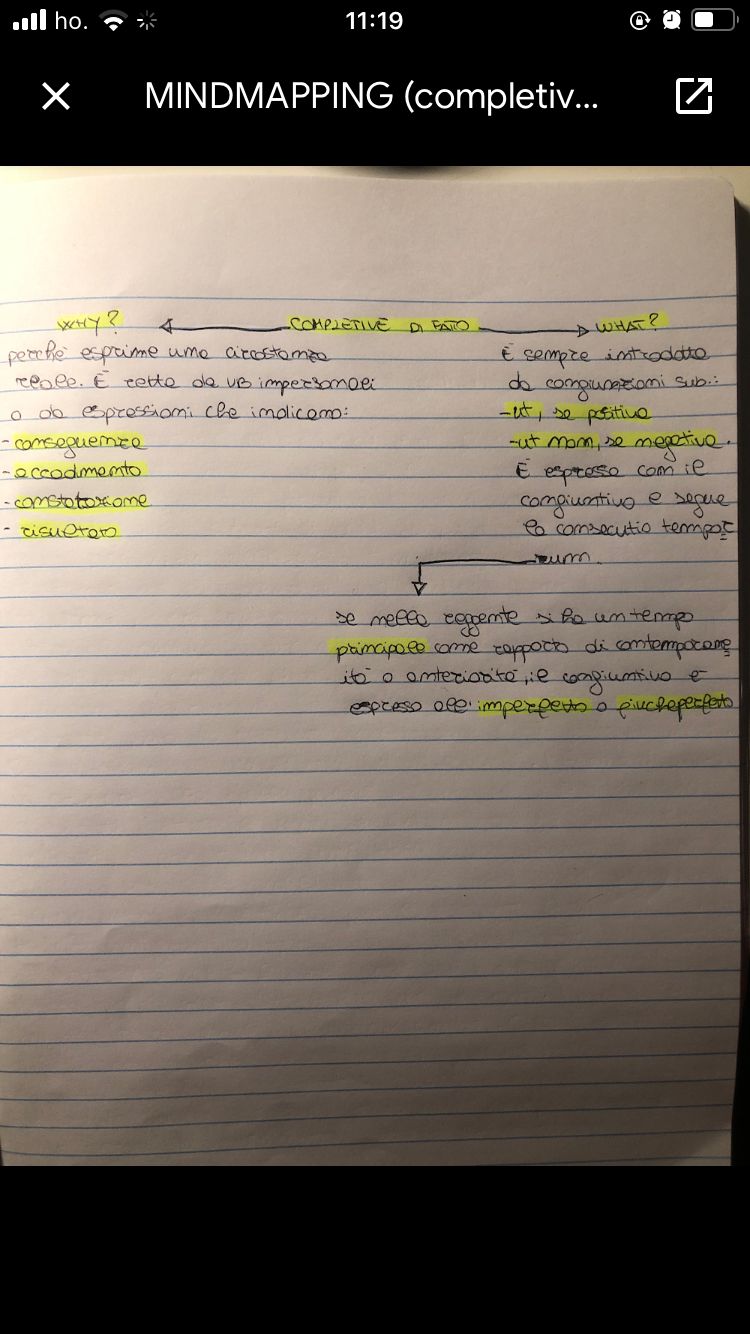 ho.
11:19
MINDMAPPING (completiv...
WHY?
COMPLETIVE DI FATO
WHAT?
perché esprime una circostanza
reale. É retta da VB impersonali
o da espressioni che indicano:
- conseguenza
- accadimento
- constatazione
- risultato
É sempre introdotta
da congiunzioni sub.:
-ut, se positiva
-ut non, se negativa.
É espressa con il
congiuntivo e segue
la consecutio tempor
um.
se nella reggente si ha un tempo
principale come rapporto di contemporane
ità o anteriorità, il congiuntivo é
espresso all'imperfetto o piuccheperfetto